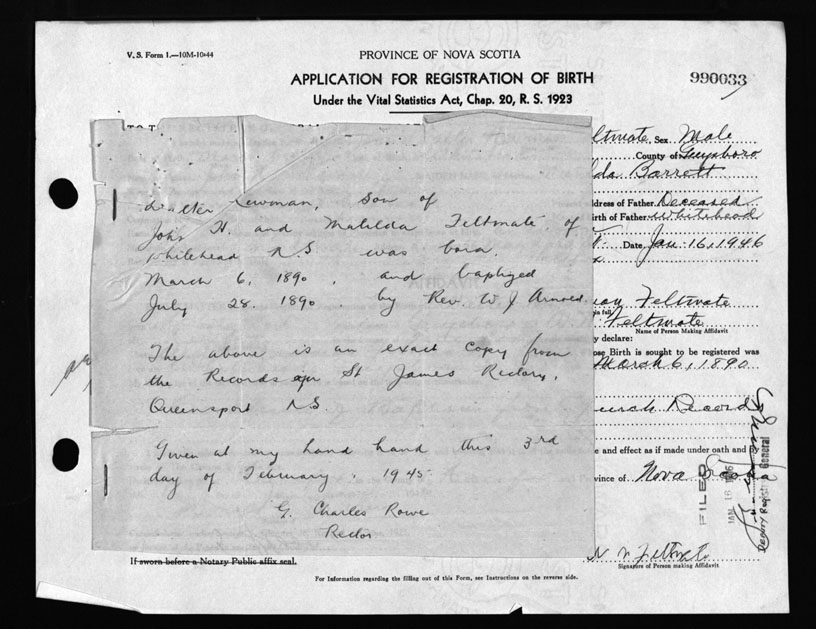 V. S. Form 1.—10M-10-44
PROVINCE OF NOVA SCOTIA
APPLICATION FOR REGISTRATION OF BIRTH
990033
Under the Vital Statistics Act, Chap. 20, R. S. 1923
Walter Newman, Son of
John H. and Matilda Feltmate of
Whitehead N.S. was born
March 6, 1890, and baptized
July 28. 1890. by Rev. W. J Arnold.
The above is an exact copy from
the Records St James Rectory,
Queensport N.S.
Given at my hand hand this 3rd
day of February. 1945
G. Charles Rowe
Rector
eltmate, Sex Male
County of Guysboro
lda Barrett
ddress of Father Deceased
irth of Father Whitehead
Date Jan. 16, 1946
Feltmate
is full
Feltmate
Name of Person Making Affidavit
y declare:
ose Birth is sought to be registered was
March 6, 1890
Church Records
e and effect as if made under oath and
rovince of Nova Sco
FILED
JAN 16 1946
Deputy Registrar General
Feltmate
Signature of Person making Affidavit
If sworn before a Notary Public affix seal.
For Information regarding the filling out of this Form, see Instructions on the reverse side.